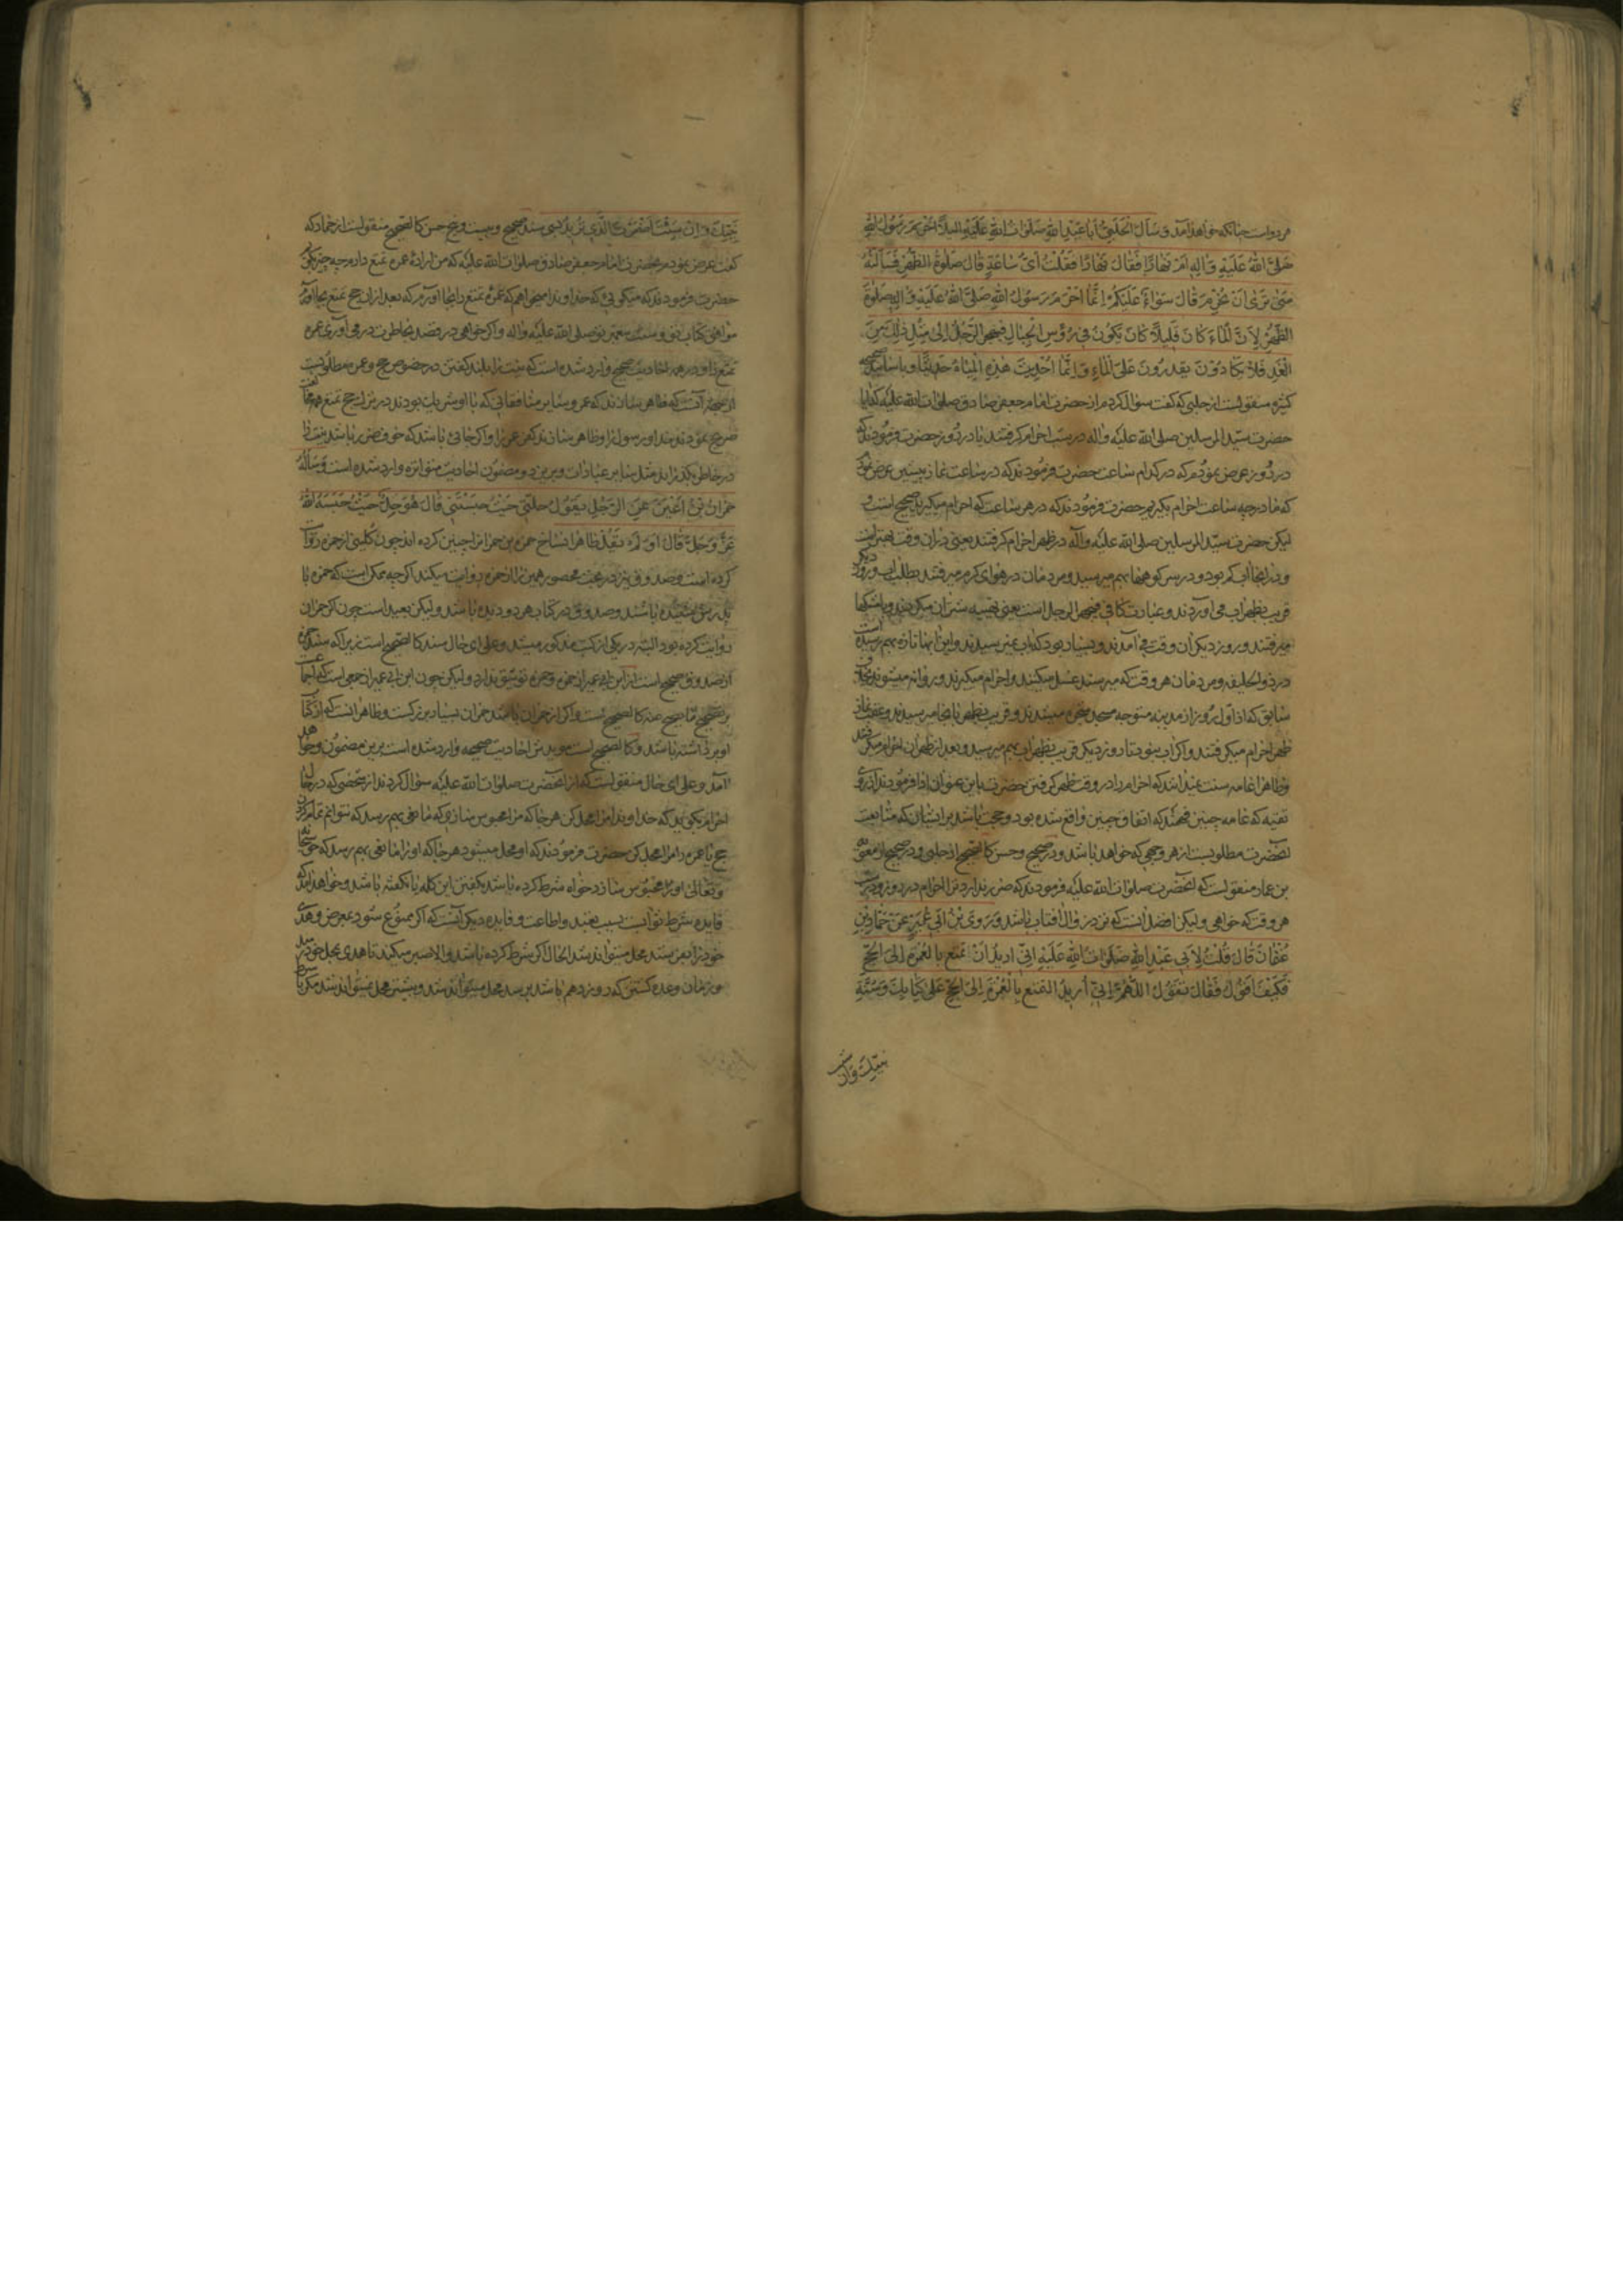 مرد و است چنانکه خواهد آمد وَسَأَلَ الْحَلَبِيُّ أَبَا عَبْدِ اللَّهِ صَلَوَاتُ اللَّهِ عَلَيْهِ أَلَيْلًا أَحْرَمَ رَسُولُ اللَّهِ
صَلَّى اللَّهُ عَلَيْهِ وَآلِهِ أَمْ نَهَارًا فَقَالَ نَهَارًا فَقُلْتُ أَيَّ سَاعَةٍ قَالَ صَلَوةَ الظُّهْرِ فَسَأَلْتُهُ
مَتَى تَرَى أَنْ نُحْرِمَ قَالَ سَوَاءٌ عَلَيْكُمْ إِنَّمَا أَحْرَمَ رَسُولُ اللَّهِ صَلَّى اللَّهُ عَلَيْهِ وَآلِهِ صَلَوةَ
الظُّهْرِ لِأَنَّ الْمَاءَ كَانَ قَلِيلًا كَانَ يَكُونُ فِي رُؤُسِ الْجِبَالِ فَيُهَجِّرُ الرَّجُلُ إِلَى مِثْلِ ذَلِكَ مِنَ
الْغَدِ فَلَا يَكَادُونَ يَقْدِرُونَ عَلَى الْمَاءِ وَإِنَّمَا أُحْدِثَتْ هَذِهِ الْمِيَاهُ حَدِيثًا و باسانید صحیحه
کثیره منقولست از حلبی که گفت سؤال کردم از حضرت امام جعفر صادق صلوات الله علیه که ایا
حضرت سید المرسلین صلی الله علیه و اله در شب احرام گرفتند یا در روز حضرت فرمودند که
در روز عرض نمودم که در کدام ساعت حضرت فرمودند که در ساعت نماز پیشین عرض نمودم
که ما در چه ساعت احرام بگیریم حضرت فرمودند که در هر ساعت که احرام میگیرید صحیح است و
لیکن حضرت سید المرسلین صلی الله علیه و آله در ظهر احرام گرفتند یعنی در ان وقت بهتر است
و در انجا اب کم بود و در سر کوهها بهم میرسید و مردمان در هوای گرم میرفتند بطلب اب و روز دیگر
قریب بظهر اب می اوردند و عبارت کافی فیهجر الرجل است یعنی تهیه شتران میکردند و با مشکها
میرفتند و روز دیگر ان وقت می آمدند و بسیار بود که باب نمیرسیدند و این ابها تازه بهم رسیده است
در ذو الحلیفه و مردمان هر وقت که میرسند غسل میکنند و احرام میگیرند و روانه میشوند بخلاف
سابق که از اول روز از مدینه متوجه مسجد شجره میشدند و قریب بظهر بانجا میرسیدند و عقب نماز
ظهر احرام میگرفتند و اگر اب نبود تا روز دیگر قریب بظهر اب بهم میرسید و بعد از ظهر ان احرام میگرفتند
و ظاهرا عامه سنت میدانند که احرام را در وقت ظهر گرفتن حضرت باین عنوان ادا فرمودند از روی
تقیه که عامه چنین فهمند که اتفاق چنین واقع شده بود و حجت باشد بر ایشان که متابعت
انحضرت مطلوبست از هر وجهی که خواهد باشد و در صحیح و حسن کالصحیح از حلبی و در صحیح از معویه
بن عمار منقولست که انحضرت صلوات الله علیه فرمودند که ضرر ندارد ترا احرام در روز و در شب
هر وقت که خواهی و لیکن افضل انست که نزد زوال افتاب باشد وَرَوَى بْنُ أَبِي عُمَيْرٍ عَنْ حَمَّادِ بْنِ
عُثْمَانَ قَالَ قُلْتُ لِأَبِي عَبْدِ اللَّهِ صَلَوَاتُ اللَّهِ عَلَيْهِ إِنِّي أُرِيدُ أَنْ أَتَمَتَّعَ بِالْعُمْرَةِ إِلَى الْحَجِّ
فَكَيْفَ أَقُولُ فَقَالَ تَقُولُ اللَّهُمَّ إِنِّي أُرِيدُ التَّمَتُّعَ بِالْعُمْرَةِ إِلَى الْحَجِّ عَلَى كِتَابِكَ وَسُنَّةِ
نبیک و ان شئت
نَبِيِّكَ وَإِنْ شِئْتَ أَضْمَرْتَ الَّذِي تُرِيدُ بسند صحیح و بیست و پنج حسن کالصحیح منقولست از حماد که
گفت عرض نمودم بحضرت امام جعفر صادق صلوات الله علیه که من اراده عمره تمتع دارم چه چیز بگویم
حضرت فرمودند که میگوئی که خداوندا میخواهم که عمره تمتع را بجا اورم که بعد از ان حج تمتع بجا آورم
موافق کتاب تو و سنت پیغمبر تو صلی الله علیه و اله و اگر خواهی در قصد بخاطرت در می آوری عمره
تمتع را و در همه احادیث صحیح وارد شده است که نیت را بلند گفتن در خصوص حج و عمره مطلوبست
از جهة انست که ظاهر سازند که عمر و سایر منافقانی که با او شریک بودند در ترک حج تمتع مخالفت
صریح نمودند خدا و رسول را و ظاهر سازند کفر عمر را و اگر جائی باشد که خوف ضرر باشد نیت را
در خاطر بگذرانند مثل سایر عبادات و برین دو مضمون احادیث متواتره وارد شده است وَسَأَلَهُ
حُمْرَانُ بْنُ أَعْيَنَ عَنِ الرَّجُلِ يَقُولُ حُلَّنِي حَيْثُ حَبَسْتَنِي قَالَ هُوَ حِلٌّ حَيْثُ حَبَسَهُ اللَّهُ
عَزَّ وَجَلَّ قَالَ أَوْ لَمْ يَقُلْ ظاهرا نساخ حمزه بن حمران را چنین کرده اند چون کلینی از حمزه روایت
کرده است و صدوق نیز در بحث محصور همین را از حمزه روایت میکند اگر چه ممکن است که حمزه با
پدرش شنیده باشند و صدوق در کتاب هر دو دیده باشد و لیکن بعید است چون اگر حمران
روایت کرده بود البته در یکی از کتب مذکور میشد و علی ای حال سند کالصحیح است زیرا که سند حمزه
از صدوق صحیح است از ابن ابی عمیر از حمزه و حمزه توثیق ندارد و لیکن چون ابن ابی عمیر از جمعی است که اجماعست
بر تصحیح ما یصح عنه کالصحیح است و اگر از حمران باشد حمران بسیار بزرگست و ظاهر انست که از کتاب
او برداشته باشد و کالصحیح است مؤید بر احادیث صحیحه وارد شده است برین مضمون و خواهد
آمد و علی ای حال منقولست که از انحضرت صلوات الله علیه سؤال کردند از شخصی که در حال
احرام بگوید که خداوندا مرا محل کن هر جا که مرا محبوس سازی که مانعی بهم رسد که نتوانم تمام کردن
حج یا عمره را مرا محل کن حضرت فرمودند که او محل میشود هر جا که او را مانعی بهم رسد که حق سبحانه
و تعالی او را محبوس سازد خواه شرط کرده باشد بگفتن این کلمه یا نگفته باشد و خواهد آمد که
فایده شرط ثوابست بسبب تعبد و اطاعت و فایده دیگر آنست که اگر ممنوع شود بمرض و هدی
خود را بفرستد محل میتواند شد الحال اگر شرط کرده باشد و الا صبر میکند تا هدی بمحل خود رسد
و زمان وعده کشتن که روز دهم باشد برسد محل میتواند شد و پیشتر محل نمیتواند شد مگر با شرط